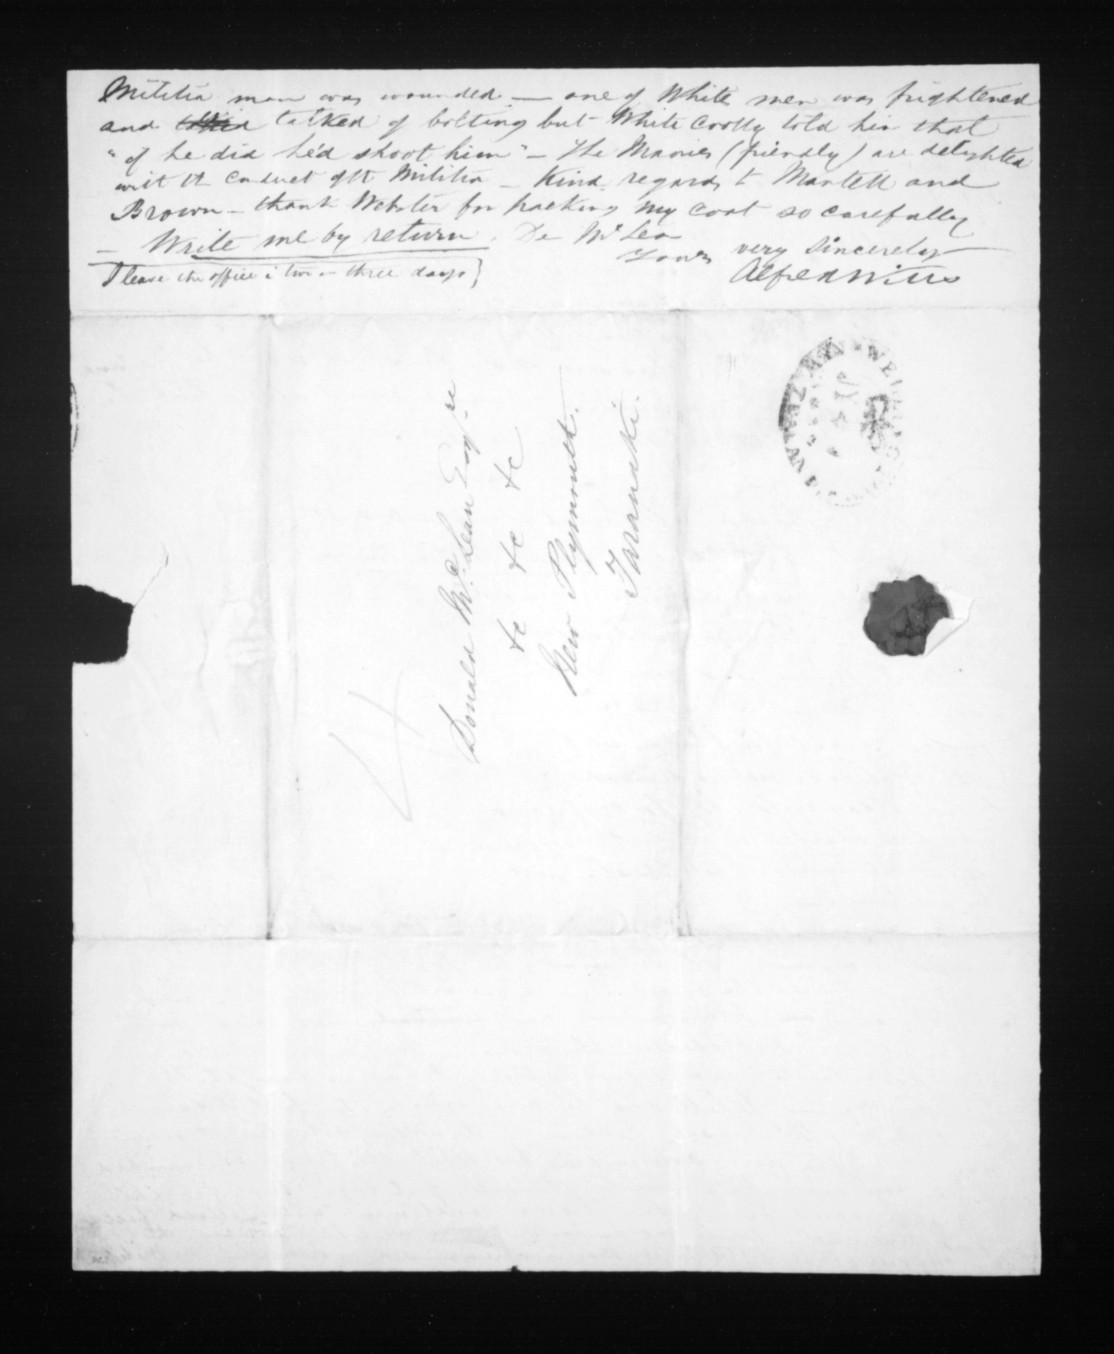 Militia man was wounded — one of White men was frightened
and talked of bolting but White coolly told him that
"if he did he'd shoot him" — The Maories (friendly) are delighted
with th conduct of th Militia — Kind regards to Mantell and
Brown — thank Webster for packing my coat so carefully
— Write me by return. De Mc Lea
Yours very Sincerely
I leave the office i two or three days}
Alfred Wills
Donald McLean Esqre
&c &c &c
New Plymouth.
Taranaki.
JY 4